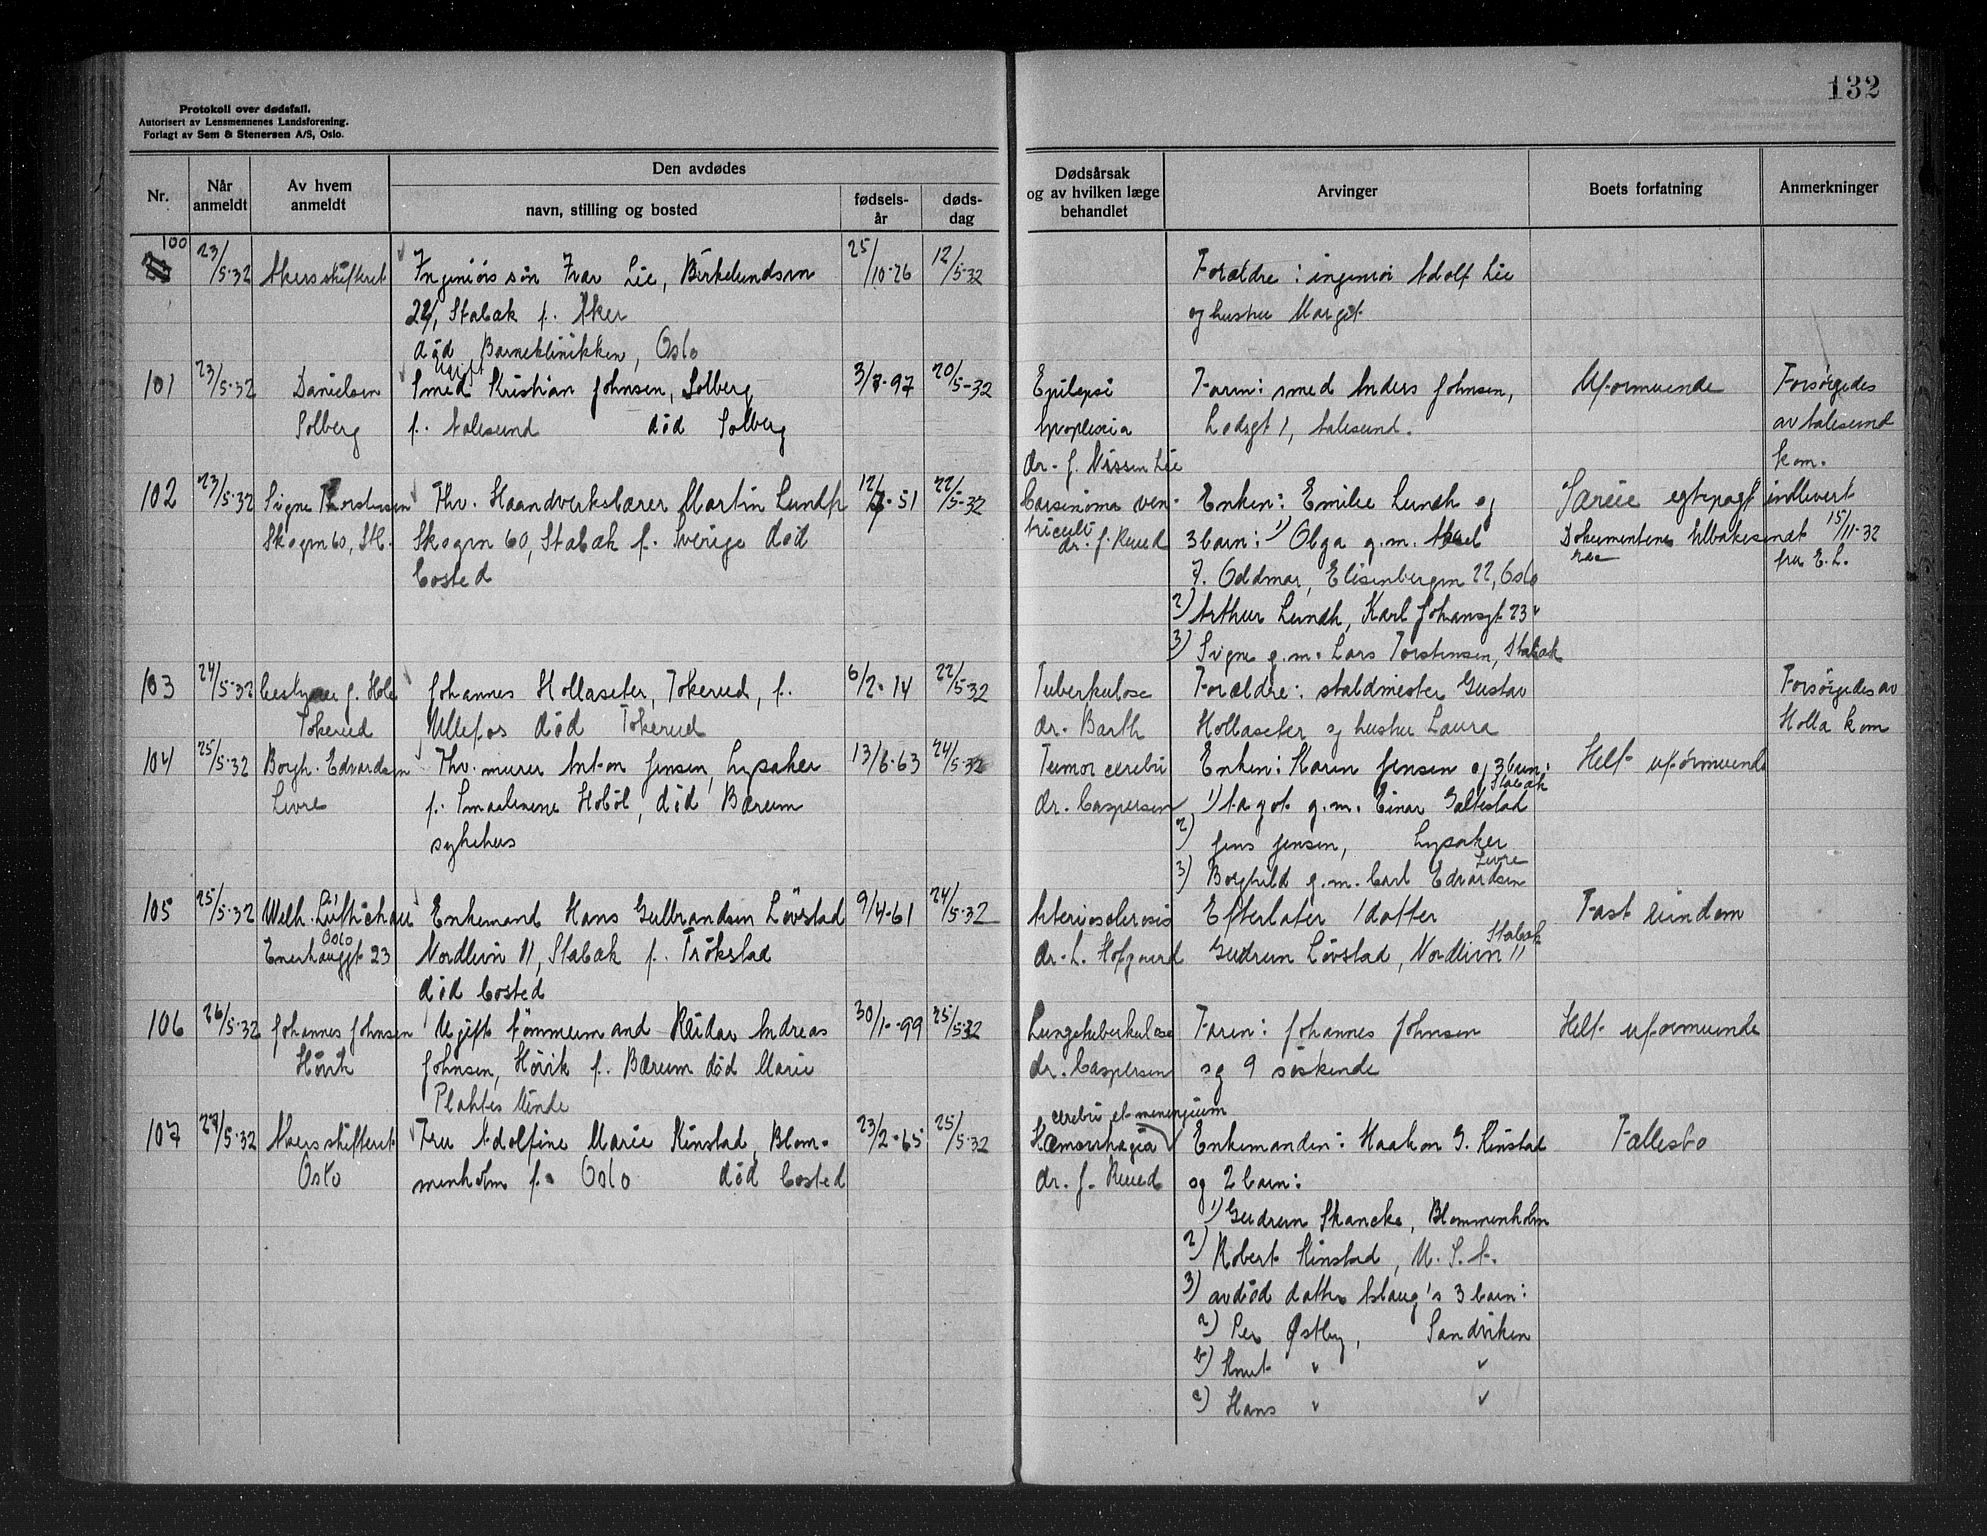 132
Protokoll over dødsfall.
Autorisert av Lensmennenes Landsforening.
Forlagt av Sem & Stenersen A/S, Oslo.
Nr.
Når anmeldt
Av hvem anmeldt
Den avdødes
navn, stilling og bosted
fødsels-år
døds-dag
Dødsårsak og av hvilken læge behandlet
Arvinger
Boets forfatning
Anmerkninger
100 23/5-32 Akersskifteret Ingeniørs søn Ivar Lie, Birkelundsvn 25/10-26 12/5-32 Forældre: ingeniør Adolf Lie
22, Stabæk f. Aker og hustru Margit
død Barneklinikken, Oslo
ugift
101 23/5-32 Danielsen Smed Kristian Johnsen, Solberg 3/7-97 20/5-32 Epilepsi Faren: smed Anders Johnsen, Uformuende Forsørgedes
Solberg f. Aalesund død Solberg Apoplexia Lodsgt 1, Aalesund. av Aalesund
dr. J. Nissen Lie kom.
102 23/5-32 Signe Thorstensen Fhv. Haandverkslærer Martin Lundh 12/-51 22/5-32 Carsinoma ven- Enken: Emilie Lundh og Særeie egtepagt indlevert
Skogvn 60, Stb. Skogvn 60, Stabæk f. Sverige død triculi dr. J. Ruud 3 barn: 1) Olga g.m. Aksel Dokumentene tilbakesendt 15/11-32
bosted F. Oldmar, Elisenbergvn 22, Oslo fru E. L.
2) Arthur Lundh, Karl Johansgt 23 "
3) Signe g.m. Lars Torstensen, Stabæk
103 24/5-32 bestyrer J. Hole Johannes Hollaseter, Tokerud, f. 6/2-14 22/5-32 Tuberkulose Forældre: staldmester Gustav Forsørgedes av
Tokerud Ullefos død Tokerud dr. Barth Hollaseter og hustru Laura Holla kom
104 25/5-32 Borgh. Edvardsen Fhv. murer Anton Jensen, Lysaker 13/6-63 24/5-32 Tumor cerebri Enken: Karen Jensen og 3 barn: Helt uformuende
Livre f. Smaalenene Hobøl, død Bærum dr. Caspersen 1) Aagot g.m. Einar Galtestad Stabæk
sykehus 2) Jens Jensen, Lysaker
3) Borghild g.m. Carl Edvardsen Livre
105 25/5-32 Wilh. Lüttichau Enkemand Hans Gulbrandsen Løvstad 9/4-61 24/5-32 Arteriosclerosis Efterlater 1 datter Fast eiendom
Oslo
Enerhauggt 23 Nordlivn 11, Stabæk f. Trøkstad dr. L. Hofgaard Gudrun Løvstad, Nordlivn 11 Stabæk
død bosted
106 26/5-32 Johannes Johnsen Ugift tømmermand Reidar Andreas 30/1-99 25/5-32 Lungetuberkulose Faren: Johannes Johnsen Helt uformuende
Høvik Johnsen, Høvik f. Bærum død Marie dr. Caspersen og 9 søskende
Plahtes Minde
107 27/5-32 Akersskifteret Fru Adolfine Marie Kinstad, Blom- 23/2-65 25/5-32 Hæmorrhagia cerebri et meningium Enkemanden: Haakon G. Kinstad Fællesbo
Oslo menholm f. Oslo død bosted dr. J. Ruud og 2 barn:
1) Gudrun Skancke, Blommenholm
2) Robert Kinstad, U. S. A.
3) avdød datter Aslaug's 3 barn:
a) Per Østby, Sandviken
b) Knut " "
c) Hans " "